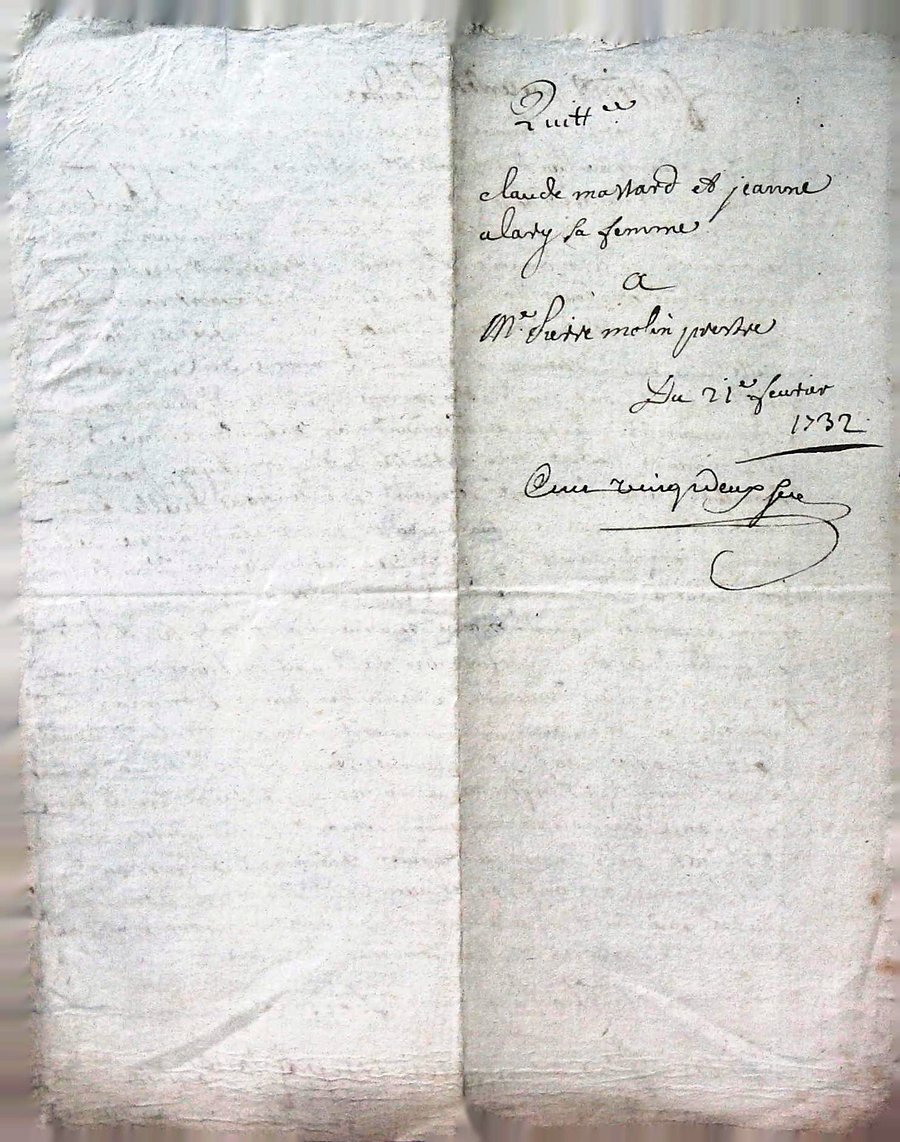 Quitt.ce
claude massard et jeanne
alary sa femme
a
Me. Pierre molin prestre
Du 21e. feurier
1732
Cent vingtdeux